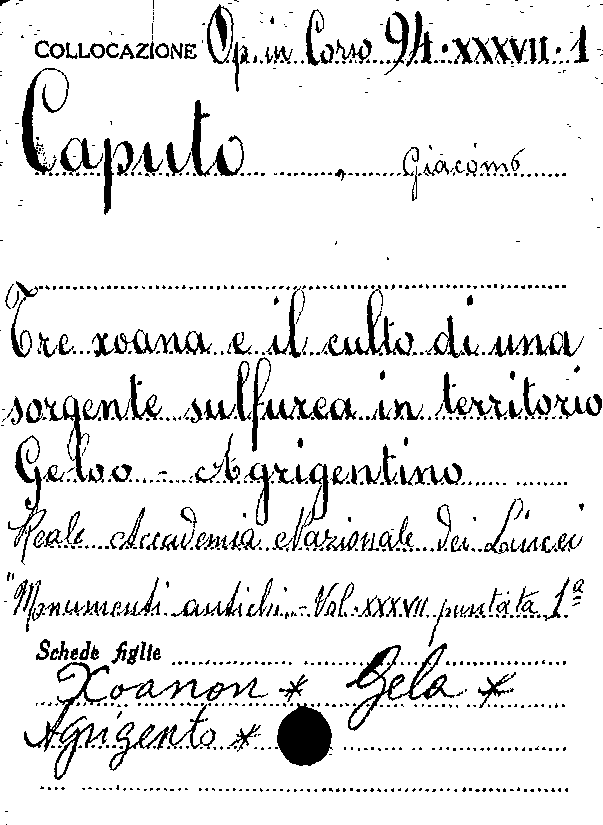 COLLOCAZIONE Op. in Corso 94·XXXVII·1
Caputo , Giacomo
Tre xoana e il culto di una
sorgente sulfurea in territorio
Geloo - Agrigentino
Reale Accademia Nazionale dei Lincei
"Monumenti antichi„ - Vol. XXXVII puntata 1ª
Schede figlie
Xoanon * Gela *
Agrigento *